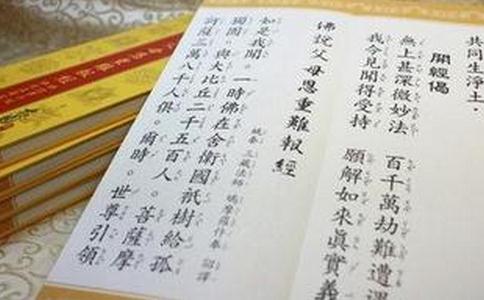 共同生淨土．
開經偈
無上甚深微妙法　百千萬劫難遭遇
我今見聞得受持　願解如來真實義
佛說父母恩重難報經
姚秦 三藏法師 鳩摩羅什奉 詔譯
如是我聞。一時佛在舍衛國祇樹給孤
獨園。與大比丘二千五百人。菩薩摩
訶薩三萬八千人俱。爾時。世尊引領